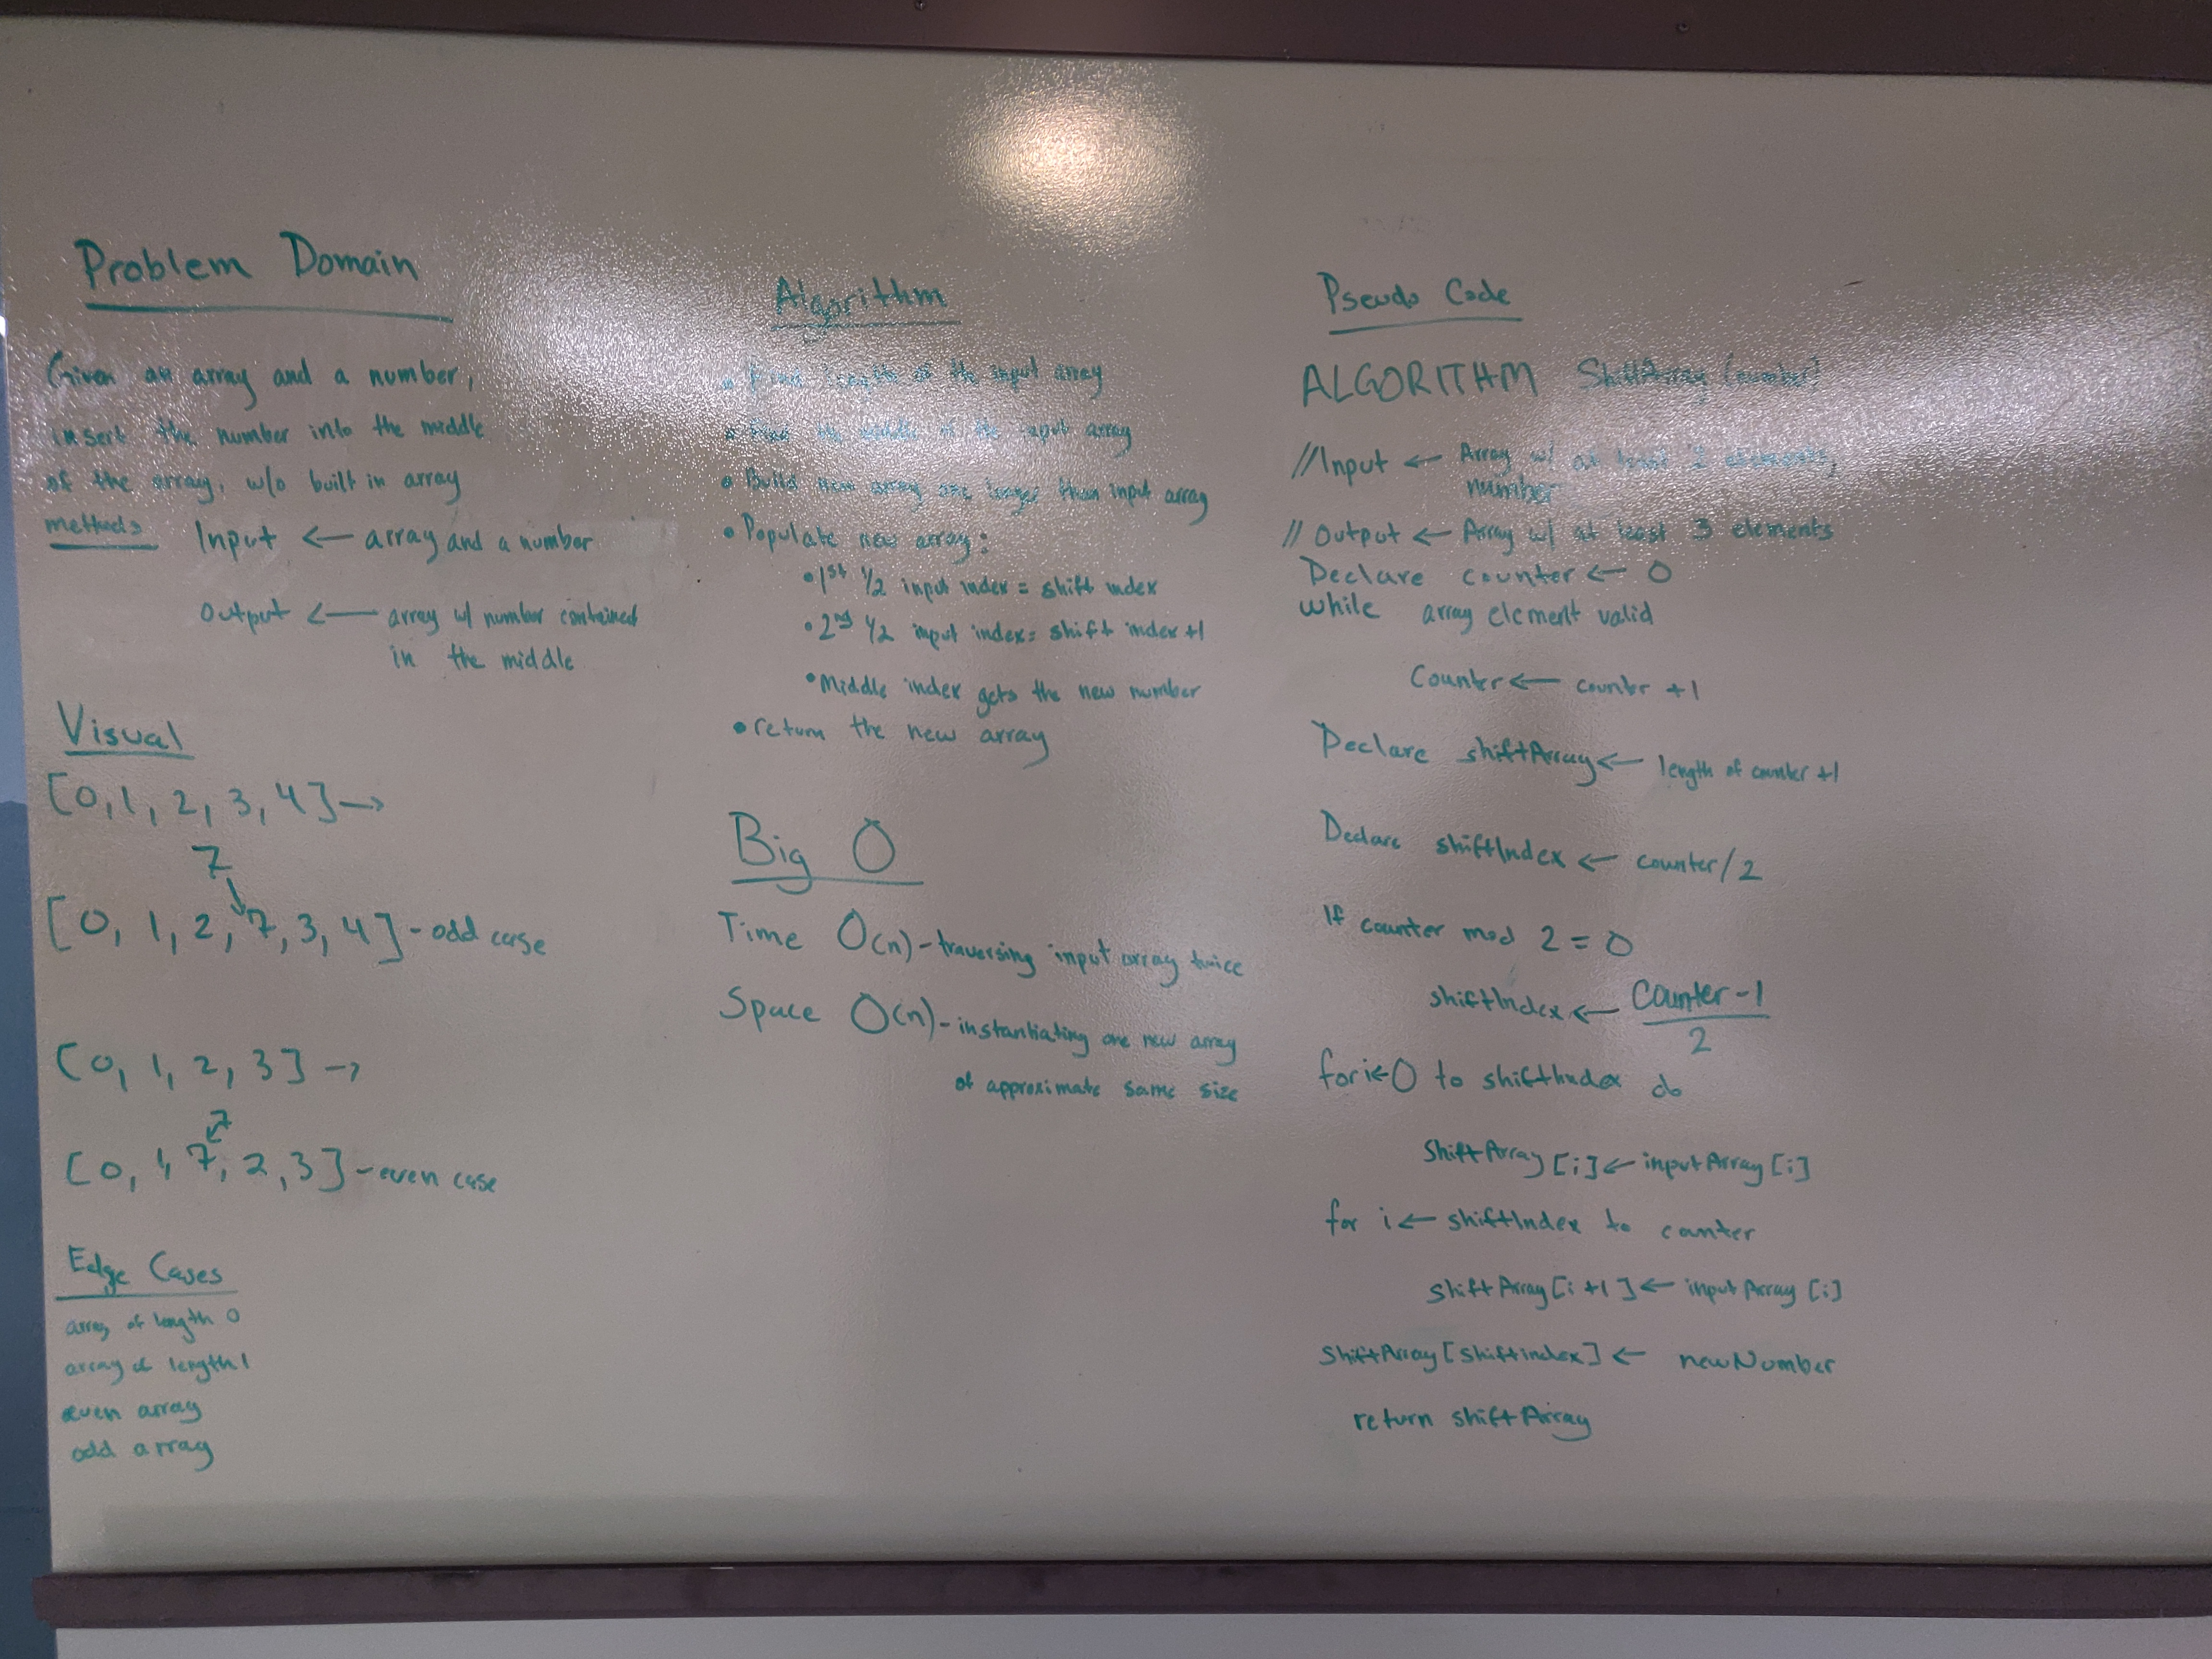 Problem Domain
Given an array and a number,
insert the number into the middle
of the array, w/o built in array
methods
Input ← array and a number
Output ← array w/ number contained
in the middle
Visual
[0, 1, 2, 3, 4] →
7
[0, 1, 2, 7, 3, 4] - odd case
[0, 1, 2, 3] →
7
[0, 1, 7, 2, 3] - even case
Edge Cases
array of length 0
array of length 1
even array
odd array
Algorithm
• Find length of the input array
• Find the middle of the input array
• Build new array one longer than input array
• Populate new array:
• 1st 1/2 input index = shift index
• 2nd 1/2 input index = shift index +1
• Middle index gets the new number
• return the new array
Big O
Time O(n) - traversing input array twice
Space O(n) - instantiating one new array
of approximate same size
Pseudo Code
ALGORITHM ShiftArray (number)
//Input ← Array w/ at least 2 elements,
number
// Output ← Array w/ at least 3 elements
Declare counter ← 0
while array element valid
Counter ← counter +1
Declare shiftArray ← length of counter +1
Declare shiftIndex ← counter/2
If counter mod 2 = 0
shiftIndex ← Counter-1
2
for i ← 0 to shiftIndex do
ShiftArray [i] ← inputArray [i]
for i ← shiftIndex to counter
shiftArray [i +1] ← inputArray [i]
ShiftArray [shiftindex] ← newNumber
return shiftArray